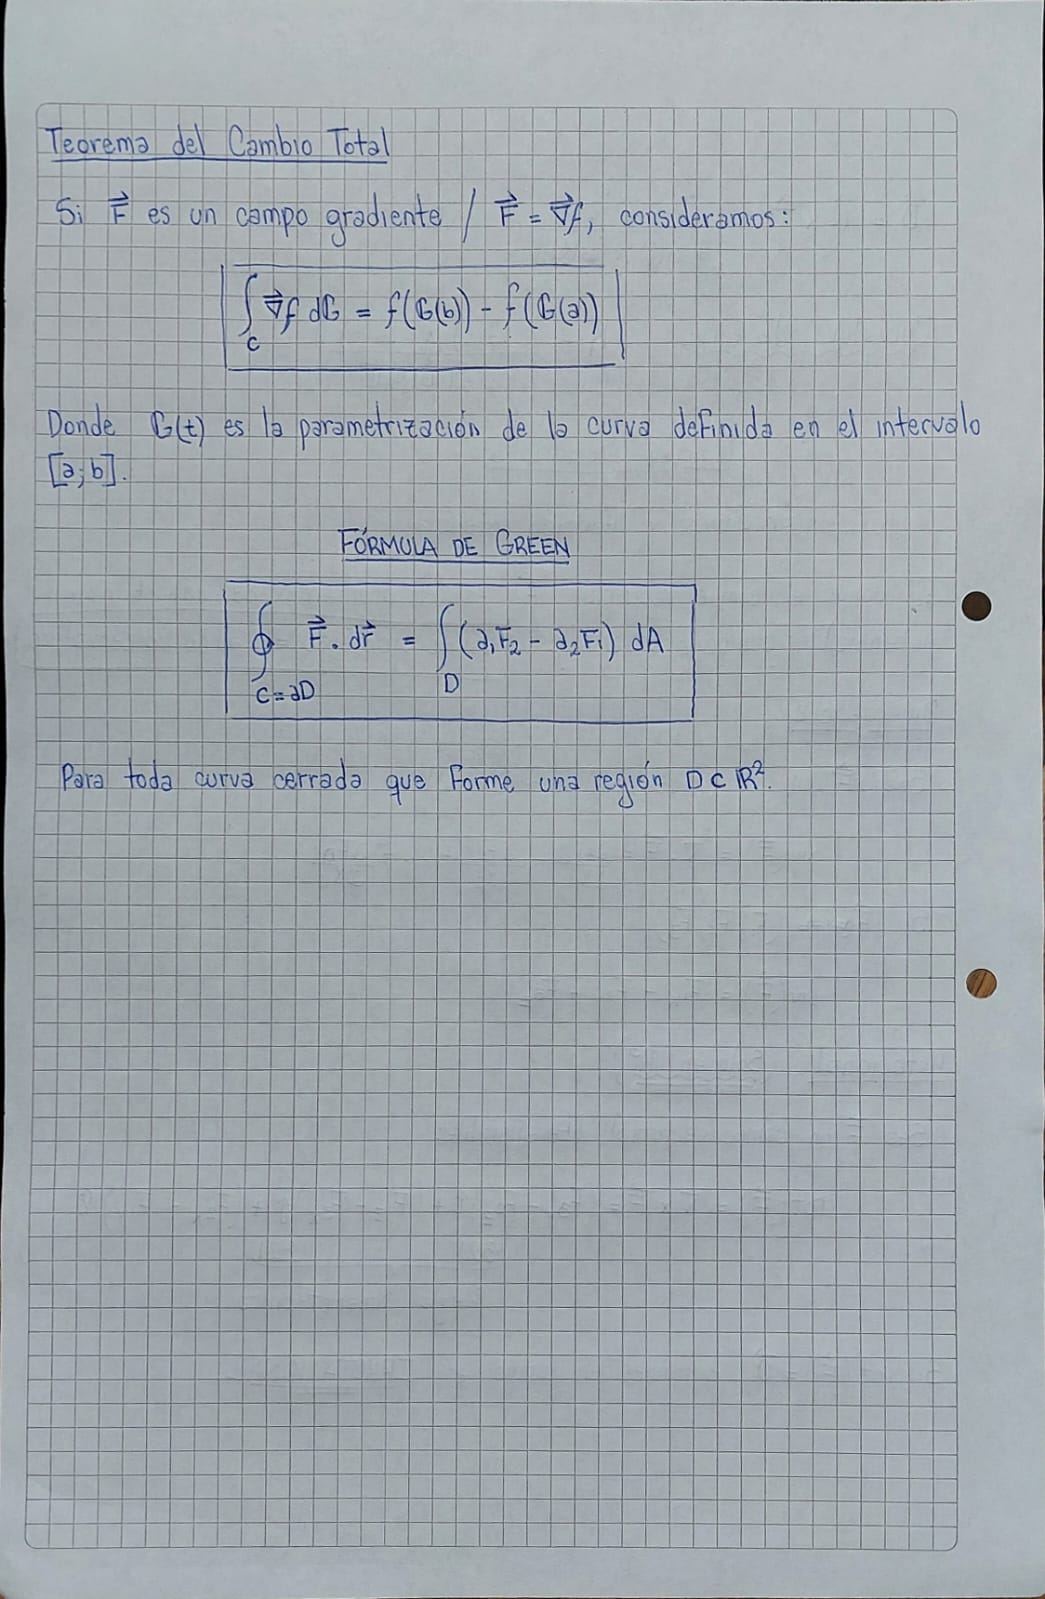 Teorema del Cambio Total
Si F⃗ es un campo gradiente / F⃗ = ∇⃗f, consideramos:
∫_C ∇⃗f dG = f(G(b)) - f(G(a))
Donde G(t) es la parametrización de la curva definida en el intervalo
[a;b].
FÓRMULA DE GREEN
∮_{C=∂D} F⃗ . dr⃗ = ∫_D (∂₁F₂ - ∂₂F₁) dA
Para toda curva cerrada que forme una región D ⊂ ℝ².